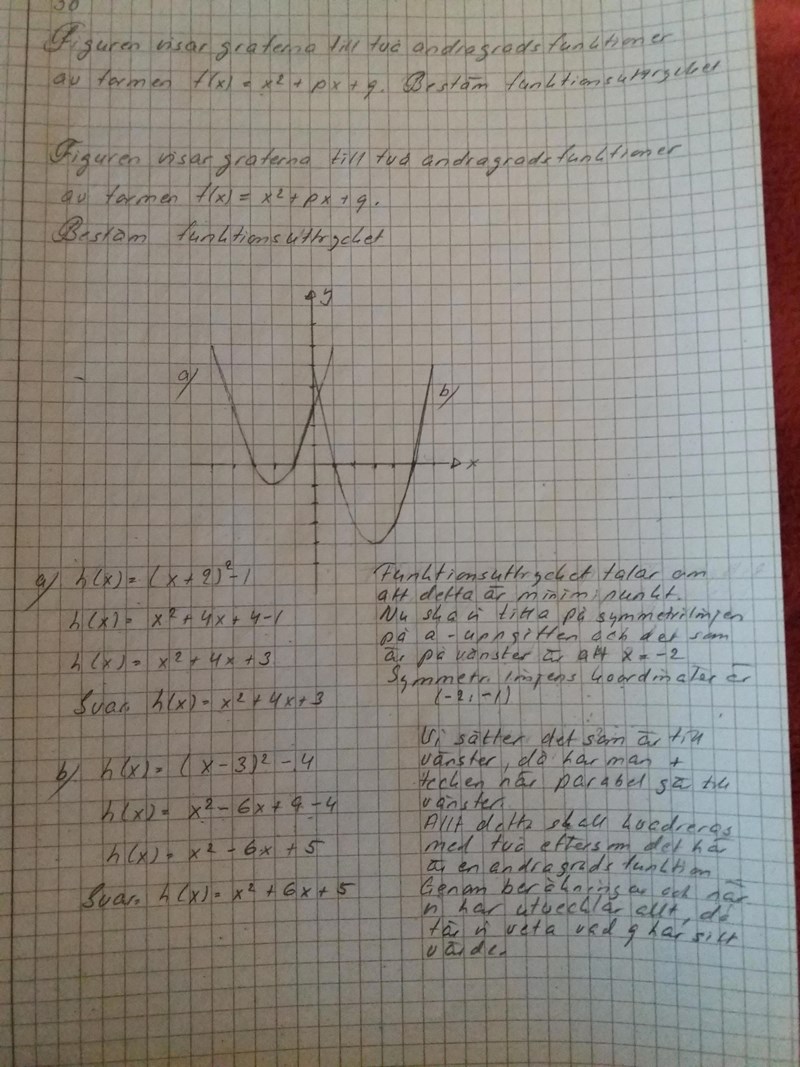 30
Figuren visar graferna till två andragradsfunktioner
av formen f(x) = x² + px + q. Bestäm funktionsuttrycket
Figuren visar graferna till två andragradsfunktioner
av formen f(x) = x² + px + q.
Bestäm funktionsuttrycket
y
a)
b)
x
a) h(x) = (x + 2)² - 1
h(x) = x² + 4x + 4 - 1
h(x) = x² + 4x + 3
Svar. h(x) = x² + 4x + 3
Funktionsuttrycket talar om
att detta är minimipunkt.
Nu ska vi titta på symmetrilinjen
på a-uppgiften och det som
är på vänster är att x = -2
Symmetrilinjens koordinater är
(-2, -1)
b) h(x) = (x - 3)² - 4
h(x) = x² - 6x + 9 - 4
h(x) = x² - 6x + 5
Svar. h(x) = x² + 6x + 5
Vi sätter det som är till
vänster, då har man +
tecken när parabel gå till
vänster.
Allt detta skall kvadreras
med två eftersom det här
är en andragrads funktion
Genom beräkningar och när
vi har utvecklar allt, då
får vi veta vad q har sitt
värde.